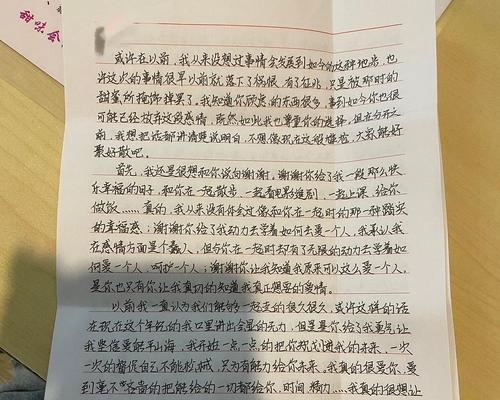 甜味会
或许在以前，我从来没想过事情会发展到如今的这种地步，也
许这次的事情很早以前就落下了祸根，有了征兆，只是被那时的
甜蜜所掩饰掉罢了，我知道你顾虑的东西很多，事到如今你也很
可能已经放弃这段感情，既然如此我也尊重你的选择，但在分开之
前，我想把话都讲清楚说明白，不想像现在这般尴尬，大家能好
聚好散吧。
首先，我还是很想和你说句谢谢。谢谢你给了我一段那么快
乐幸福的日子，和你在一起散步，一起看电影追剧，一起上课，给你
做饭……真的，我从来没有体会过像和你在一起时的那一种踏实
的幸福感；谢谢你给了我动力去学着如何去爱一个人，我承认我
在感情方面是个蠢人，但与你在一起却有了无限的动力去学着如
何爱一个人，呵护一个人；谢谢你让我知道我原来可以这么爱一个人，
是你也只有你让我真切的知道我真正想要的爱情。
以前我一直认为我们能够一起走的很久很久，或许这样的话
在现在这个年纪的我口里讲出会显的无力，但是是你给了我勇气让
我坚信爱能平山海，我开始一点一点的把你规划进我的未来，一次
一次的督促自己不能放城，只为有能力给你未来。我真的很爱你，爱
到毫不吝啬的把能给的一切都给你，时间精力……我真的很想让